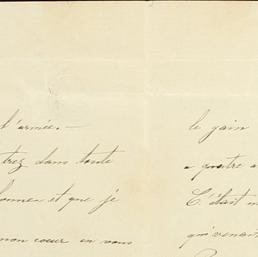 l'armée. —
trez dans toute
donner et que je
mon coeur en vous
le gain
quatre a
C'était m
qui venait